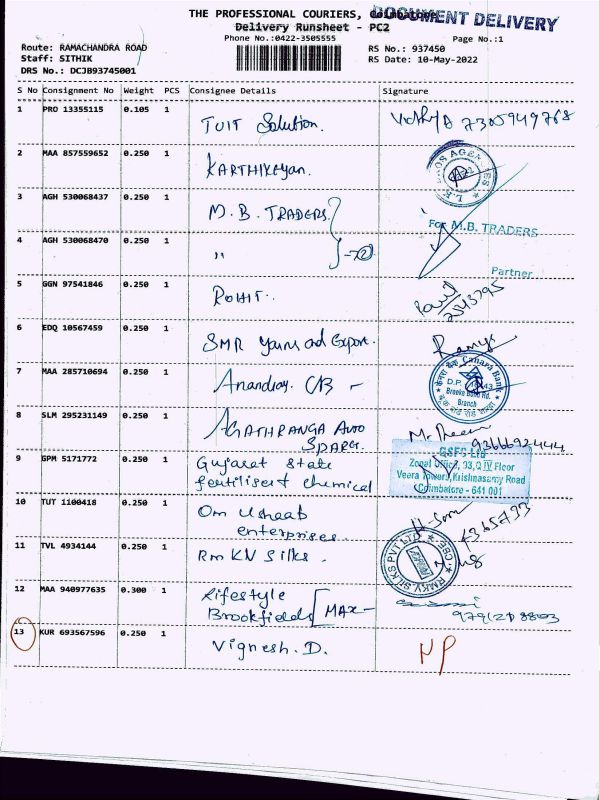 THE PROFESSIONAL COURIERS, Coimbatore
DOCUMENT DELIVERY
Delivery Runsheet - PC2
Phone No.:0422-3505555
Page No.:1
Route: RAMACHANDRA ROAD
Staff: SITHIK
DRS No.: DCJB93745001
RS No.: 937450
RS Date: 10-May-2022
S No Consignment No Weight PCS Consignee Details Signature
1 PRO 13355115 0.105 1 TUIT Solution. 7305949768
2 MAA 857559652 0.250 1 KARTHIKeyan.
3 AGH 530068437 0.250 1 M.B. TRADERS.
For M.B. TRADERS
4 AGH 530068470 0.250 1 "
Partner
5 GGN 97541846 0.250 1 ROHIT.
6 EDQ 10567459 0.250 1 SMR Yarns and Export. Ramya
7 MAA 285710694 0.250 1 Anandray. CAB -
Canara Bank
Branch
8 SLM 295231149 0.250 1 AGATHRANGA AUTO
SPARES.
9366692444
9 GPM 5171772 0.250 1 Gujarat State
fertiliser chemical
GSFC Ltd
Zonal Office, 93, Q IV Floor
Veera Towers, Krishnasamy Road
Coimbatore - 641 001
10 TUT 1100418 0.250 1 Om Ushaab
enterprises.
11 TVL 4934144 0.250 1 Rm KV Silks.
12 MAA 940977635 0.300 1 Lifestyle
Brookfields [MAX-
13 KUR 693567596 0.250 1 Vignesh. D. NP